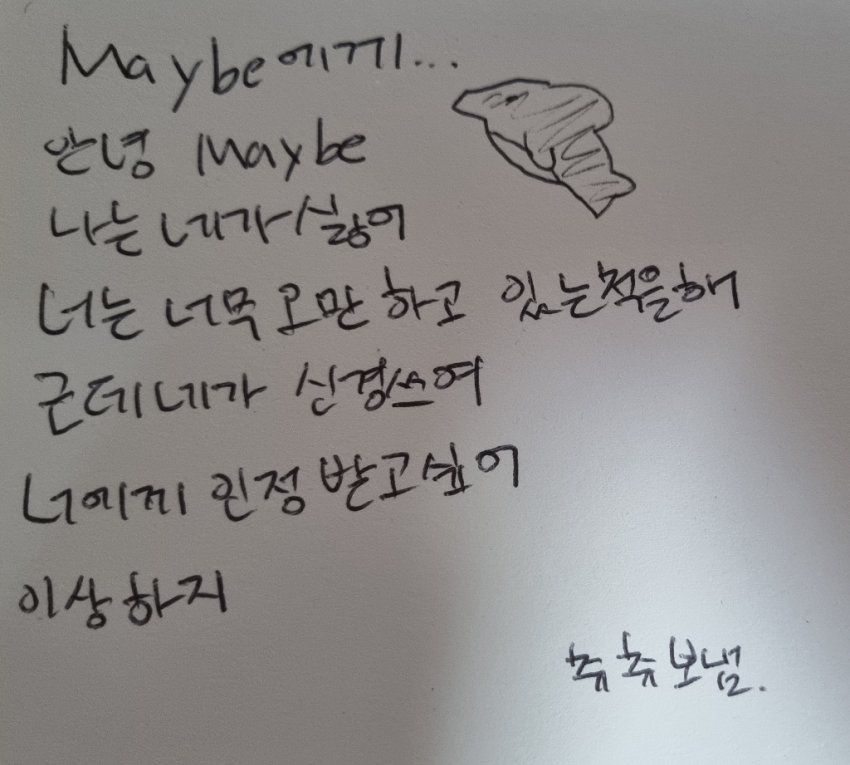 Maybe에게...
안녕 Maybe
나는 네가 싫어
너는 너무 오만하고 있는 척을 해
근데 네가 신경쓰여
너에게 인정 받고 싶어
이상하지
츄츄 보냄.